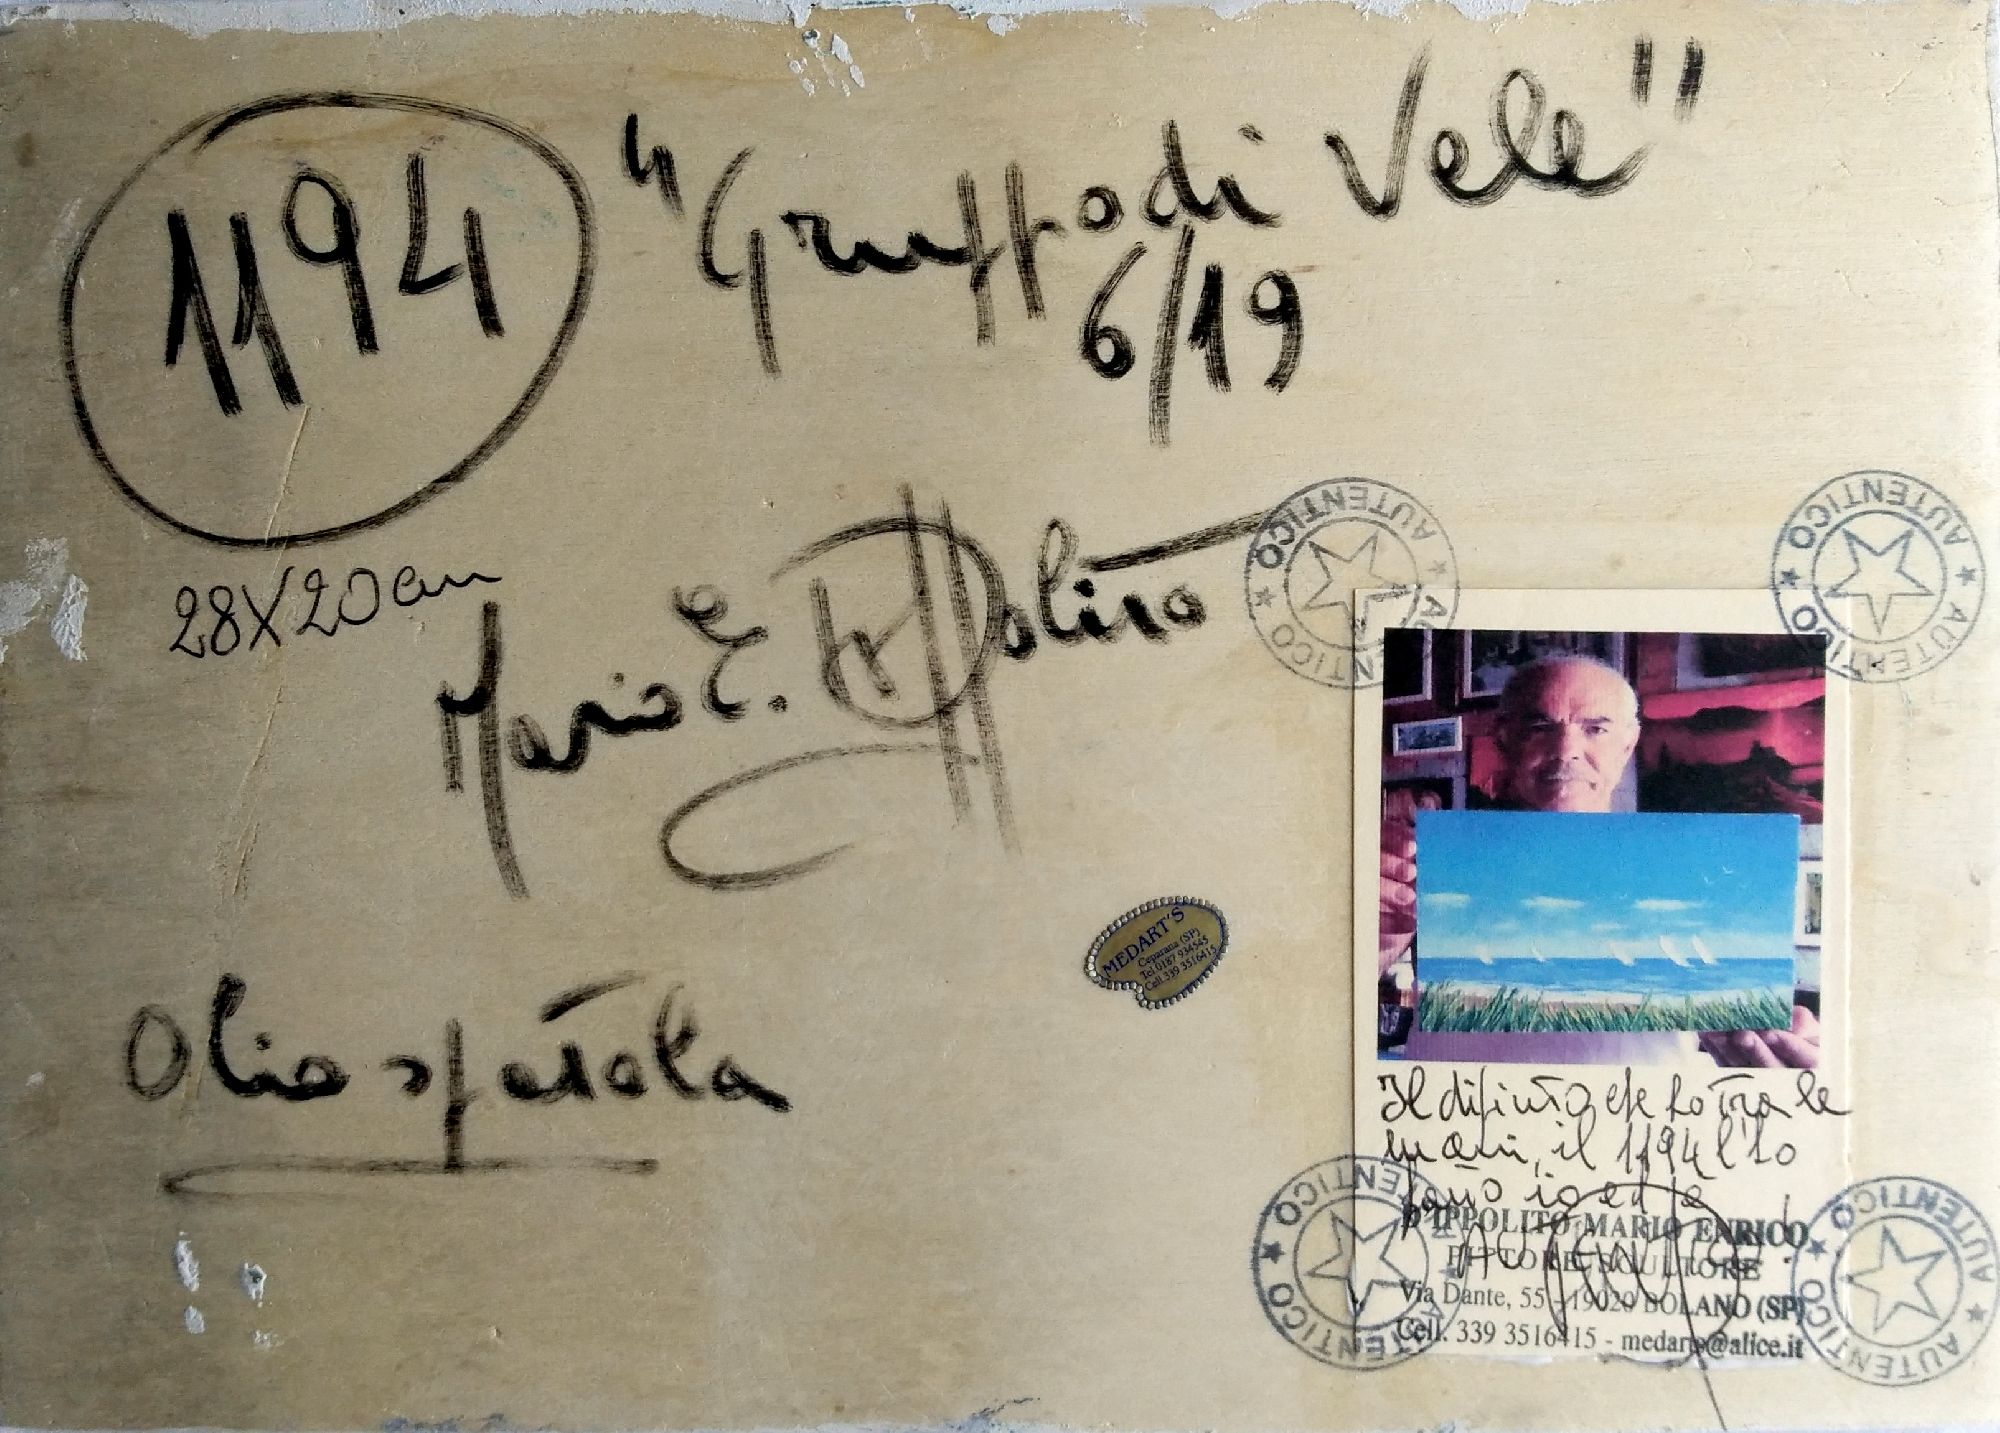 1194
"Gruppo di Vele"
6/19
28X20 cm
Mario E. D'Ippolito
Olio spatola
MEDART'S
Ceparana (SP)
Tel. 0187 934545
Cell. 339 3516415
AUTENTICO ★ AUTENTICO ★
AUTENTICO ★ AUTENTICO ★
Il dipinto che ho tra le
mani, il 1194 l'ho
fatto io ed è
AUTENTICO!
D'IPPOLITO MARIO ENRICO
PITTORE SCULTORE
Via Dante, 55 - 19020 BOLANO (SP)
Cell. 339 3516415 - medarts@alice.it
AUTENTICO ★ AUTENTICO ★
AUTENTICO ★ AUTENTICO ★